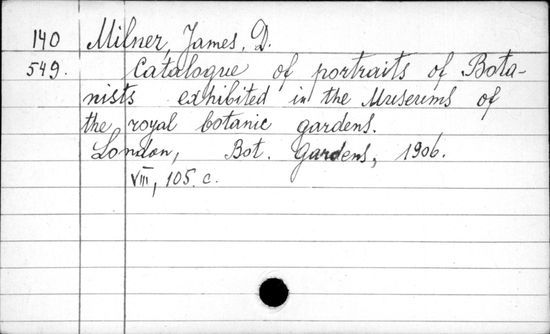 140 Milner, James, D.
549. Catalogue of portraits of Bota-
nists exhibited in the Museums of
the royal botanic gardens.
London, Bot. Gardens, 1906.
VIII, 105. c.